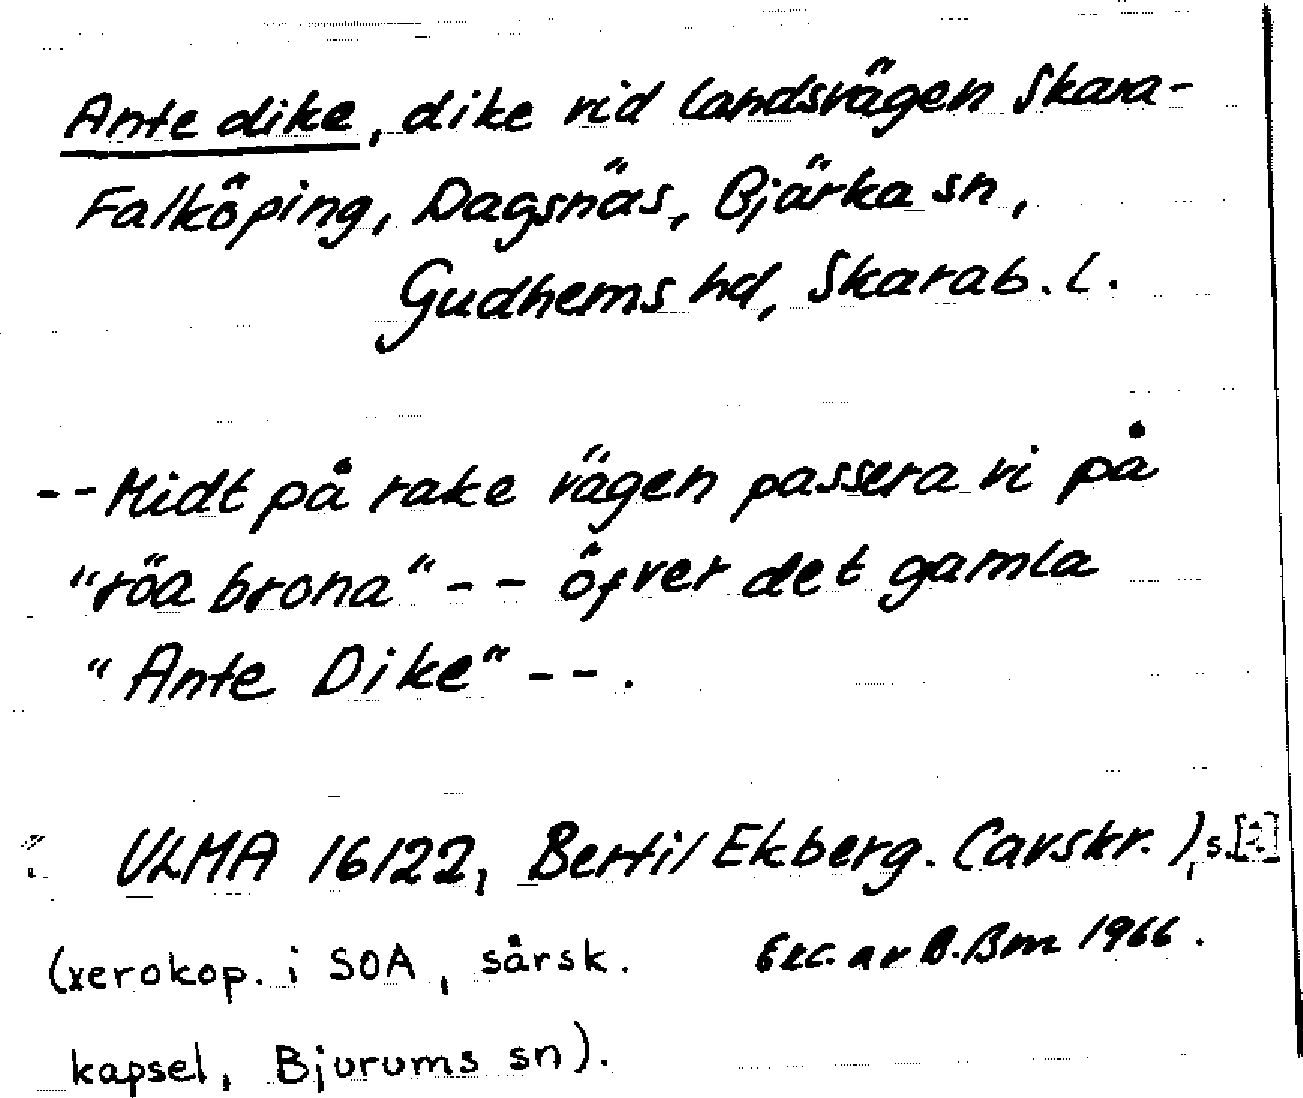 Ante dike, dike vid landsvägen Skara-
Falköping, Dagsnäs, Bjärka sn,
Gudhems hd, Skarab. l.
--Midt på rake vägen passera vi på
"röa brona" -- öfver det gamla
"Ante Dike" --.
ULMA 16122, Bertil Ekberg. (avskr.), s.[2]
Exc. av B. Bm 1966.
(xerokop. i SOA, särsk.
kapsel, Bjurums sn).